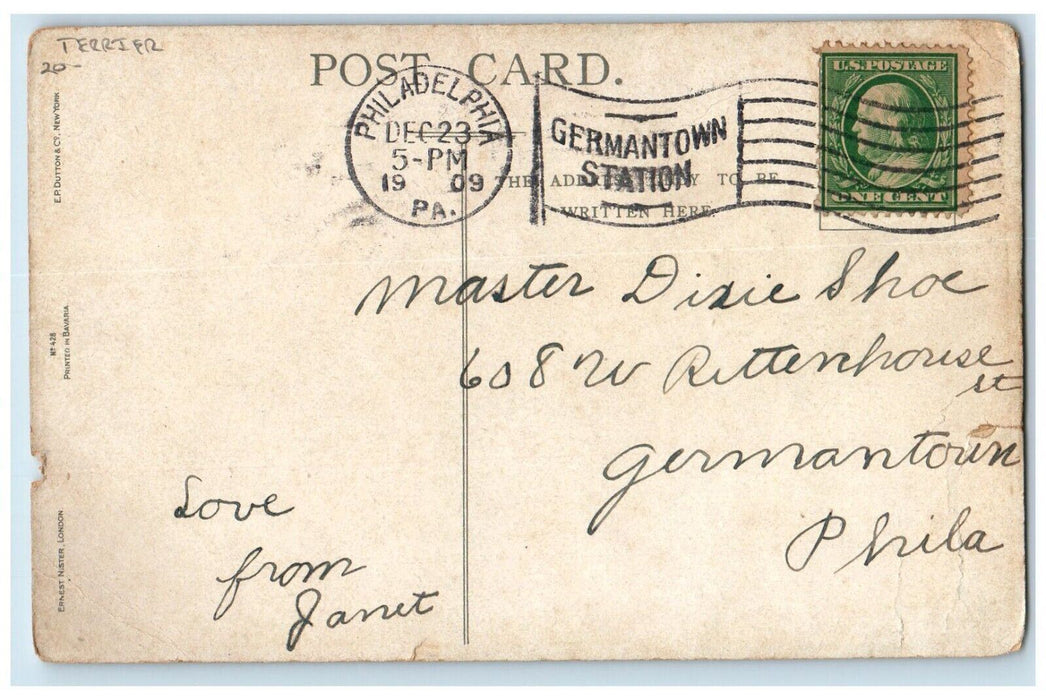 TERRIER
20-
POST CARD.
PHILADELPHIA
DEC 23
5-PM
19 09
PA.
GERMANTOWN
STATION
U.S. POSTAGE
ONE CENT
THE ADDRESS ONLY TO BE
WRITTEN HERE.
E.P. DUTTON & Co. NEW YORK
No 428
PRINTED IN BAVARIA
ERNEST NISTER, LONDON
Master Dixie Shoe
608 W Rittenhouse
st
Germantown
Phila
Love
from
Janet